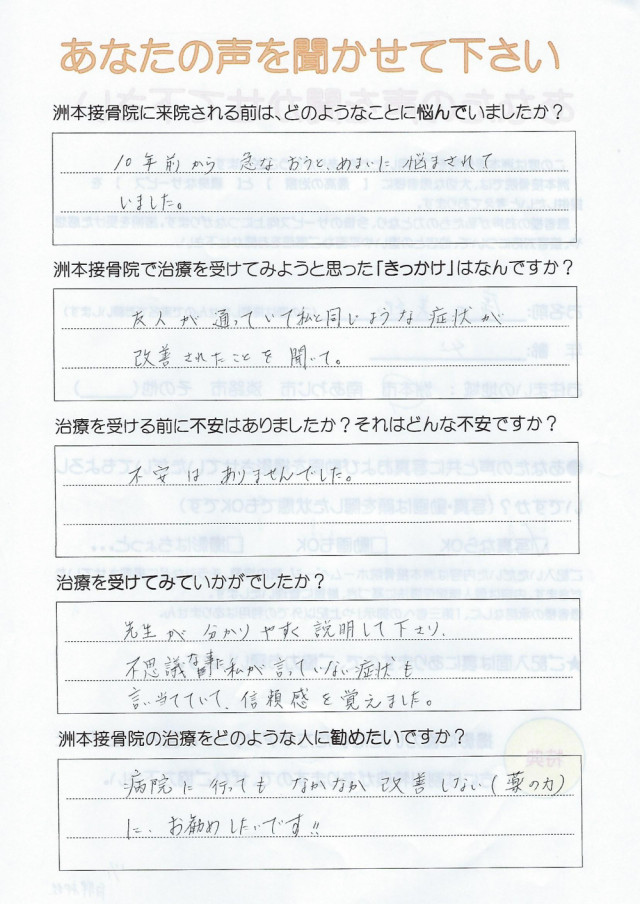 あなたの声を聞かせて下さい
洲本接骨院に来院される前は、どのようなことに悩んでいましたか？
10年前から 急な おうと、めまいに 悩まされて
いました。
洲本接骨院で治療を受けてみようと思った「きっかけ」はなんですか？
友人が 通っていて私と同じような 症状が
改善されたことを 聞いて。
治療を受ける前に不安はありましたか？それはどんな不安ですか？
不安は ありませんでした。
治療を受けてみていかがでしたか？
先生が 分かりやすく 説明して下さり、
不思議な事に私が言っていない症状も
言い当てていて、信頼感を覚えました。
洲本接骨院の治療をどのような人に勧めたいですか？
病院に 行っても なかなか 改善しない(薬の力)
に、お勧めしたいです!!